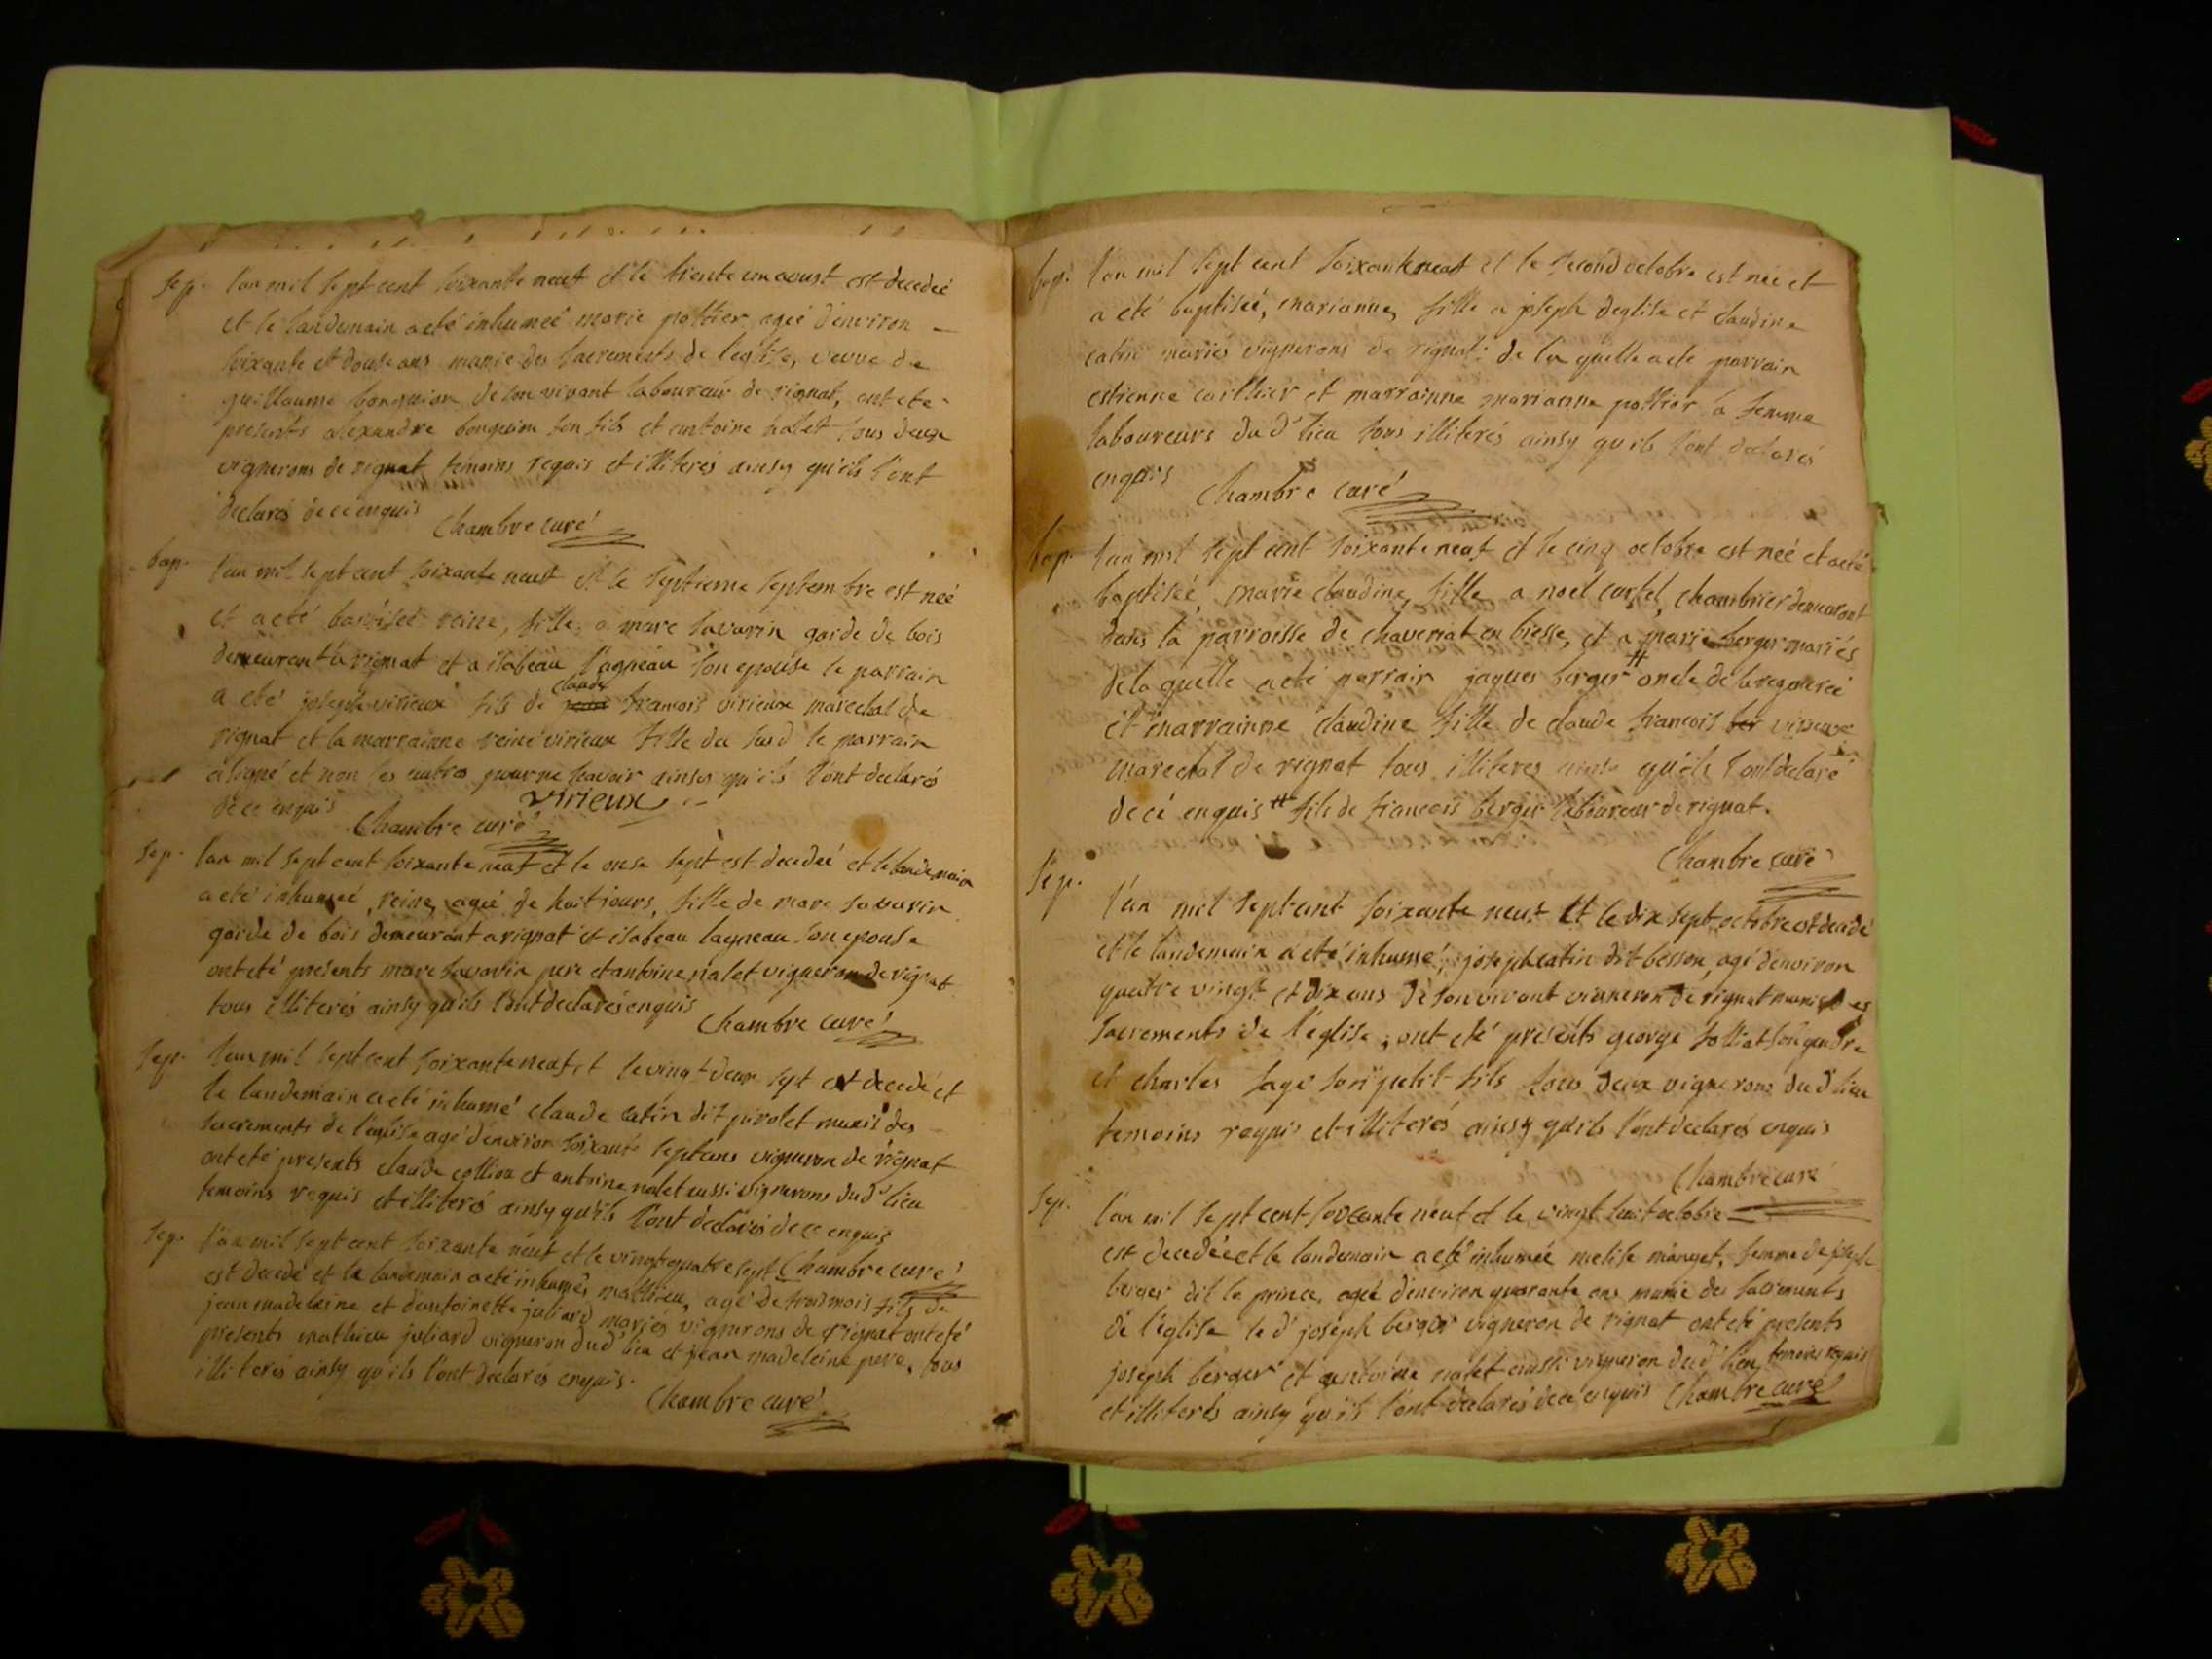 sep. l'an mil sept cent soixante neuf et le trente un aoust est decedeé
et le landemain a eté inhumeé marie pottier ageé d'environ –
soixante et douse ans munie des sacrements de l'eglise, veuve de
guillaume bonguion de son vivant laboureur de rignat, ont eté
presents alexandre bonguion son fils et antoine nalet tous deux
vignerons de rignat temoins requis et illiterés ainsy qu'ils l'ont
declarés de ce enquis
Chambre curé
bap. l'an mil sept cent soixante neuf et le septieme septembre est neé
et a eté baptiseé reine, fille a marc savarin garde de bois
demeurent a rignat et a isabeau lagneau son epouse le parrain
a eté joseph virieux fils de jean claude francois virieux marechal de
rignat et la marrainne reine virieux fille du susd le parrain
a signé et non les autres pour ne scavoir ainsy qu'ils l'ont declarés
de ce enquis
virieux
Chambre curé
sep. l'an mil sept cent soixante neuf et le onse sept est decedeé et le landemain
a eté inhumeé reine, ageé de huit jours, fille de marc savarin
garde de bois demeurant a rignat et isabeau lagneau son epouse
ont eté presents marc savarin pere et antoine nalet vigneron de rignat
tous illiterés ainsy qu'ils l'ont declarés enquis
Chambre curé
sep. l'an mil sept cent soixante neuf et le vingt deux sept est decedé et
le landemain a eté inhumé claude catin dit pirolet munis des –
sacrements de l'eglise agé d'environ soixante sept ans vigneron de rignat
ont eté presents claude collion et antoine nalet aussi vignerons dud lieu
temoins requis et illiterés ainsy qu'ils l'ont declarés de ce enquis
Chambre curé
sep. l'an mil sept cent soixante neuf et le vingt quatre sept
est decedé et le landemain a eté inhumé, matthieu, agé de trois mois fils de
jean madeleine et d'antoinette juliard mariés vignerons de rignat ont eté
presents mathieu juliard vigneron dud lieu et jean madeleine pere, tous
illiterés ainsy qu'ils l'ont declarés enquis.
Chambre curé
bap. l'an mil sept cent soixante neuf et le second octobre est neé et
a eté baptiseé, marianne, fille a joseph deglise et claudine
catin mariés vignerons de rignat: de la quelle a eté parrain
estienne and marrainne marianne pottier sa femme
laboureurs dud lieu tous illiterés ainsy qu'ils l'ont declarés
enquis
Chambre curé
bap. l'an mil sept cent soixante neuf et le cinq octobre est neé et a eté
baptiseé, marie claudine, fille a noel curtel, chambrier demeurant
dans la parroisse de chaveriat en bresse, et a marie berger mariés
de la quelle a eté parrain jaques berger # oncle de la
et marrainne claudine fille de claude francois ber virieux
marechal de rignat tous illiteres ainsy qu'ils l'ont declaré
de cé enquis # fils de francois berger laboureur de rignat.
Chambre curé
sep. l'an mil sept cent soixante neuf et le dix sept octobre est decedé
et le landemain a eté inhumé, joseph catin dit besson, agé d'environ
quatre vingt et dix ans de son vivant vigneron de rignat munis des
sacrements de l'église; ont eté presents george solliat son gendre
et charles sage son petit fils tous deux vignerons dud lieu
temoins requis et illiterés ainsy qu'ils l'ont declarés enquis
Chambre curé
sep. l'an mil sept cent soixante neuf et le vingt huit octobre –
est decedée et le landemain a eté inhumée mangot, femme de joseph
berger dit le prince, ageé d'environ quarante ans munie des sacrements
de l'église le d joseph berger vigneron de rignat ont eté presents
joseph berger et antoine nalet aussi vigneron dud lieu, temoins requis
et illiterés ainsy qu'ils l'ont declarés de ce enquis Chambre curé